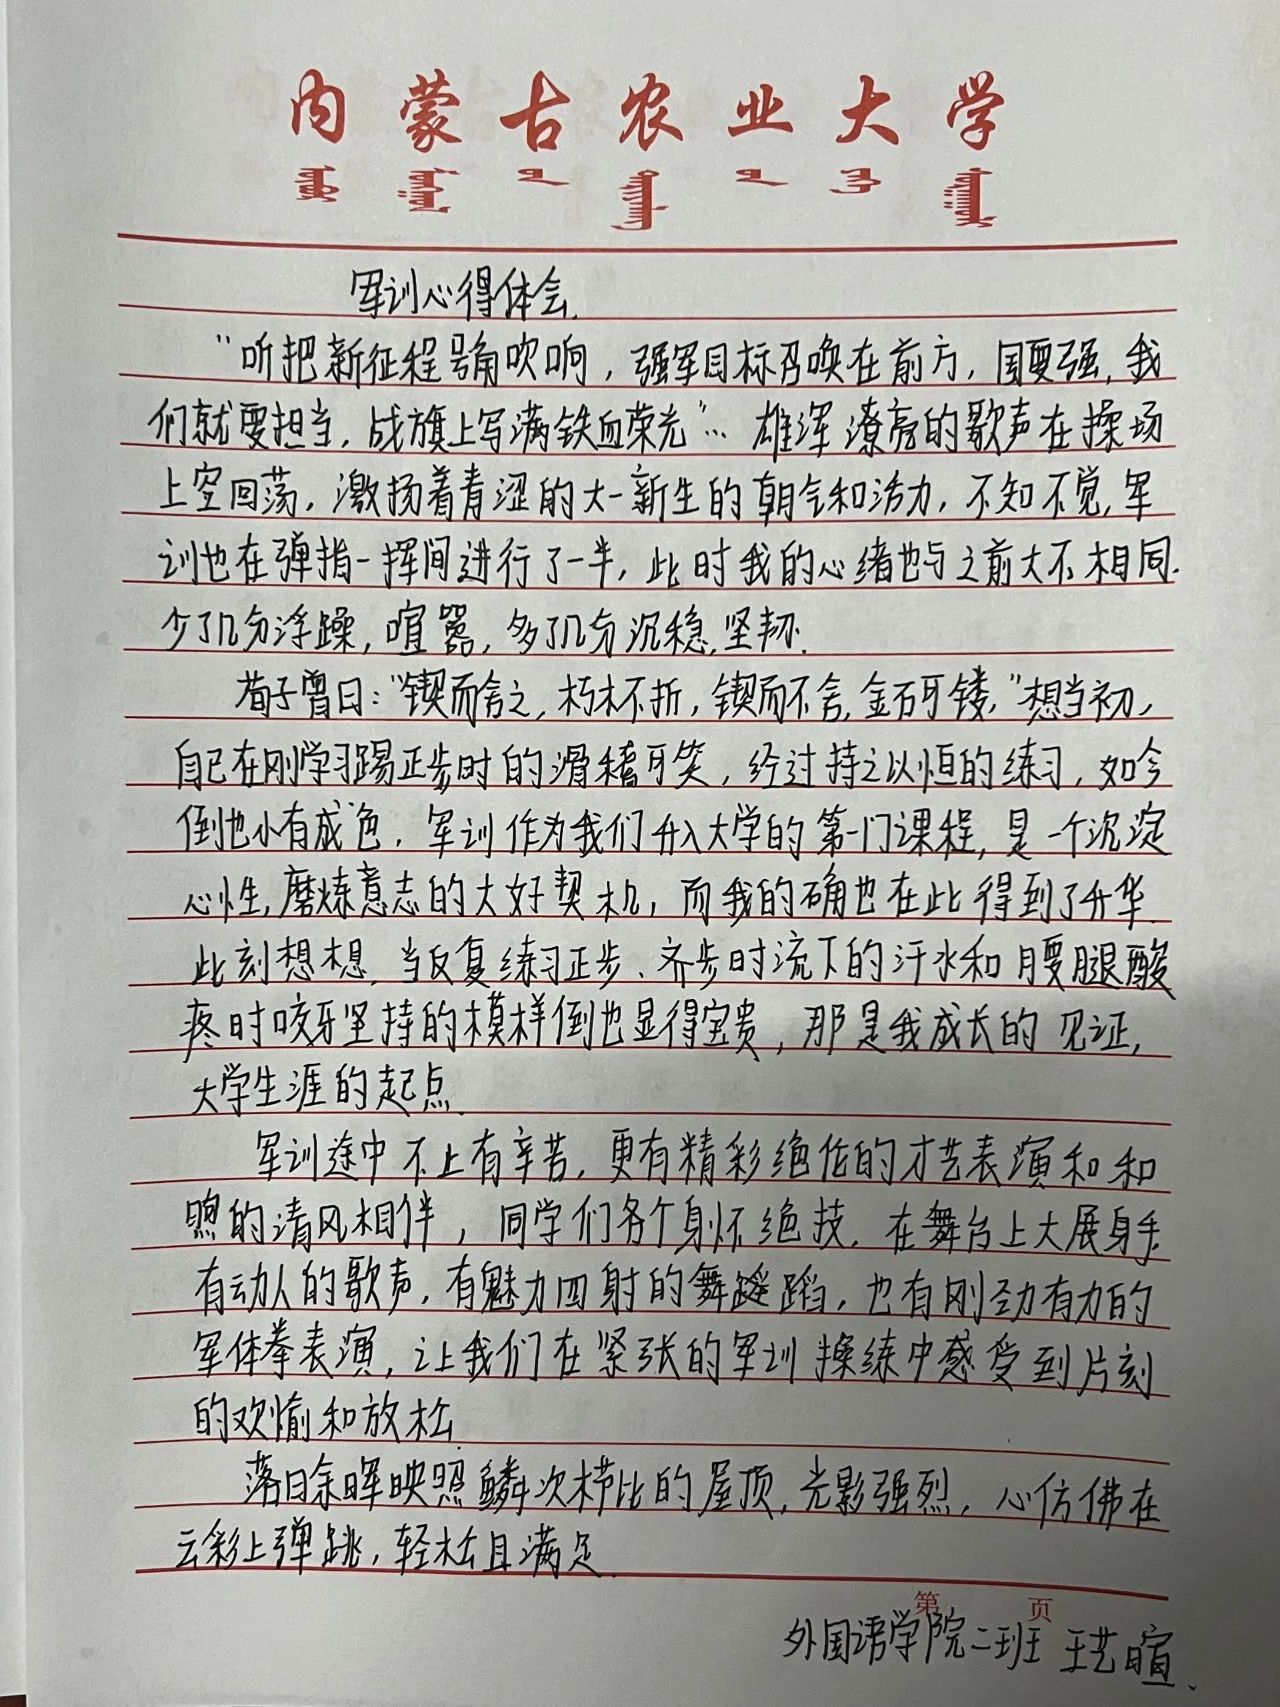 内蒙古农业大学
军训心得体会.
“听把新征程号角吹响，强军目标召唤在前方，国要强，我
们就要担当，战旗上写满铁血荣光”… 雄浑潦亮的歌声在操场
上空回荡，激扬着青涩的大一新生的朝气和活力，不知不觉，军
训也在弹指一挥间进行了一半，此时我的心绪也与之前大不相同.
少了几分浮躁，喧嚣，多了几分沉稳，坚韧.
荀子曾曰：“锲而舍之，朽木不折，锲而不舍，金石可镂，”想当初，
自己在刚学习踢正步时的滑稽可笑，经过持之以恒的练习，如今
倒也小有成色，军训作为我们升入大学的第一门课程，是一个沉淀
心性，磨炼意志的大好契机，而我的确也在此得到了升华.
此刻想想，当反复练习正步、齐步时流下的汗水和腰腿酸
疼时咬牙坚持的模样倒也显得宝贵，那是我成长的见证，
大学生涯的起点.
军训途中不止有辛苦，更有精彩绝伦的才艺表演和和
煦的清风相伴，同学们各个身怀绝技，在舞台上大展身手
有动人的歌声，有魅力四射的舞蹈，也有刚劲有力的
军体拳表演，让我们在紧张的军训操练中感受到片刻
的欢愉和放松.
落日余晖映照鳞次栉比的屋顶，光影强烈，心仿佛在
云彩上弹跳，轻松且满足.
第 页
外国语学院二班 王艺暄.